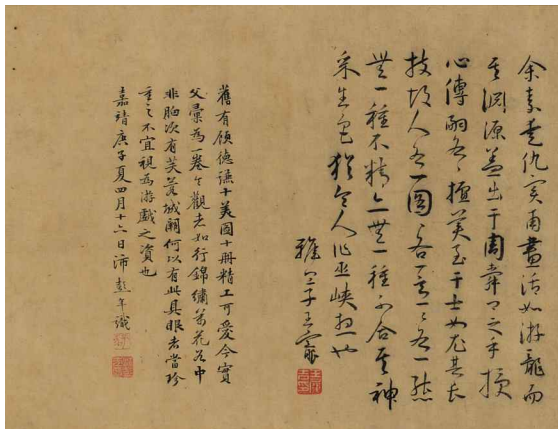 余素愛仇實甫畫活如游龍而
其淵源蓋出于周之手
心傳擅美至于士女尤其長
技故人各一圖圖各一意意各一態
無一種不精亦無一種不合其神
采生色猶令人作巫峽想也
雅宜子王寵
舊有顧德謙十美圖十冊精工可愛今實
父彙為一卷令觀者如行錦繡萬花谷中
非胸次有芙蓉城闕何以有此具眼者當珍
重之不宜視為游戲之資也
嘉靖庚子夏四月十六日沛彭年識